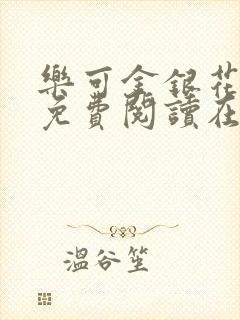 樂可金銀花
免費閱讀在
溫谷笙